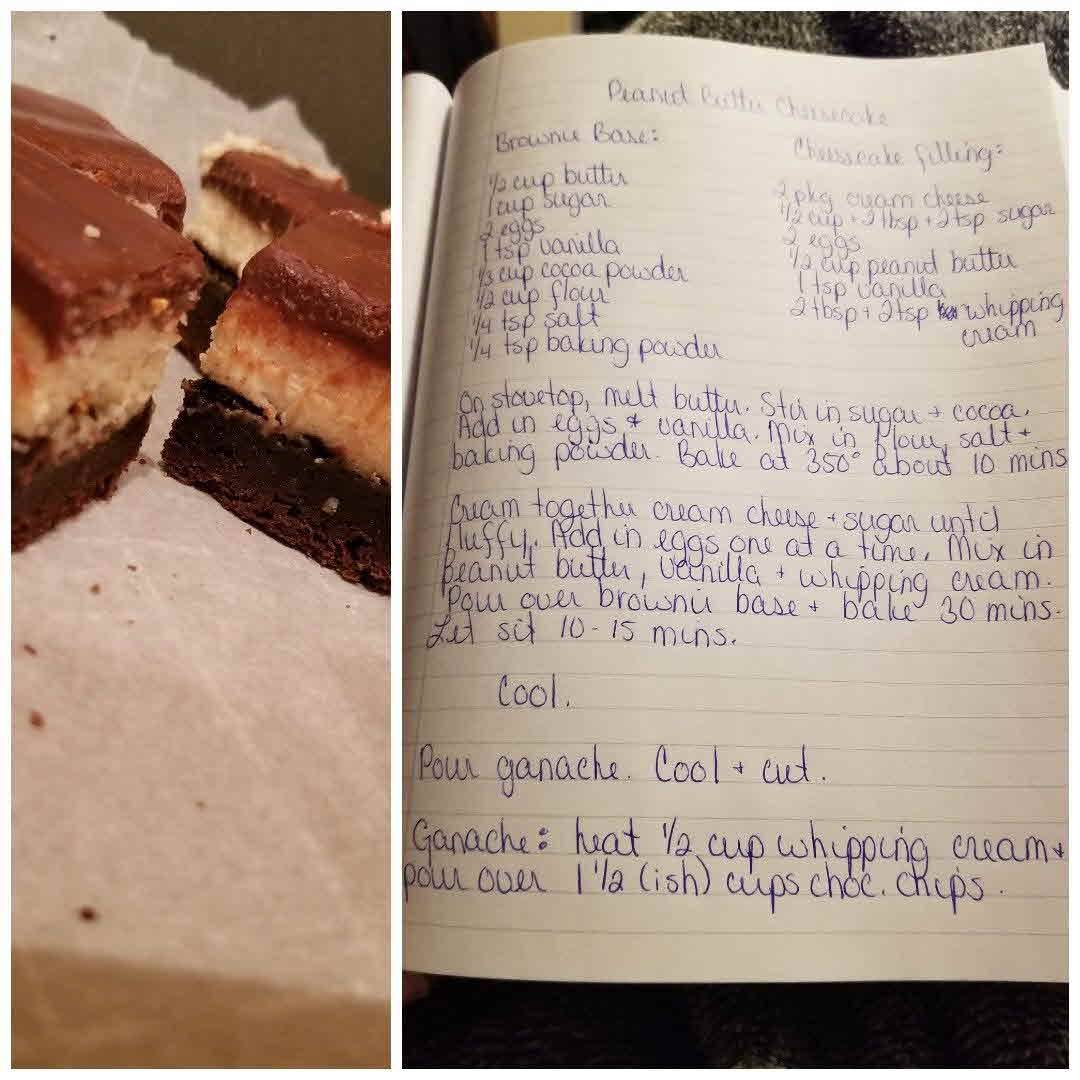 Peanut Butter Cheesecake
Brownie Base:
1/2 cup butter
1 cup sugar
2 eggs
1 tsp vanilla
1/3 cup cocoa powder
1/2 cup flour
1/4 tsp salt
1/4 tsp baking powder
Cheesecake filling:
2 pkg cream cheese
1/2 cup + 2 tbsp + 2 tsp sugar
2 eggs
1/2 cup peanut butter
1 tsp vanilla
2 tbsp + 2 tsp whipping
cream
On stovetop, melt butter. Stir in sugar + cocoa.
Add in eggs + vanilla. Mix in flour, salt +
baking powder. Bake at 350° about 10 mins
Cream together cream cheese + sugar until
fluffy. Add in eggs one at a time. Mix in
peanut butter, vanilla + whipping cream.
Pour over brownie base + bake 30 mins.
Let sit 10-15 mins.
Cool.
Pour ganache. Cool + cut.
Ganache: heat 1/2 cup whipping cream +
pour over 1 1/2 (ish) cups choc. chips.